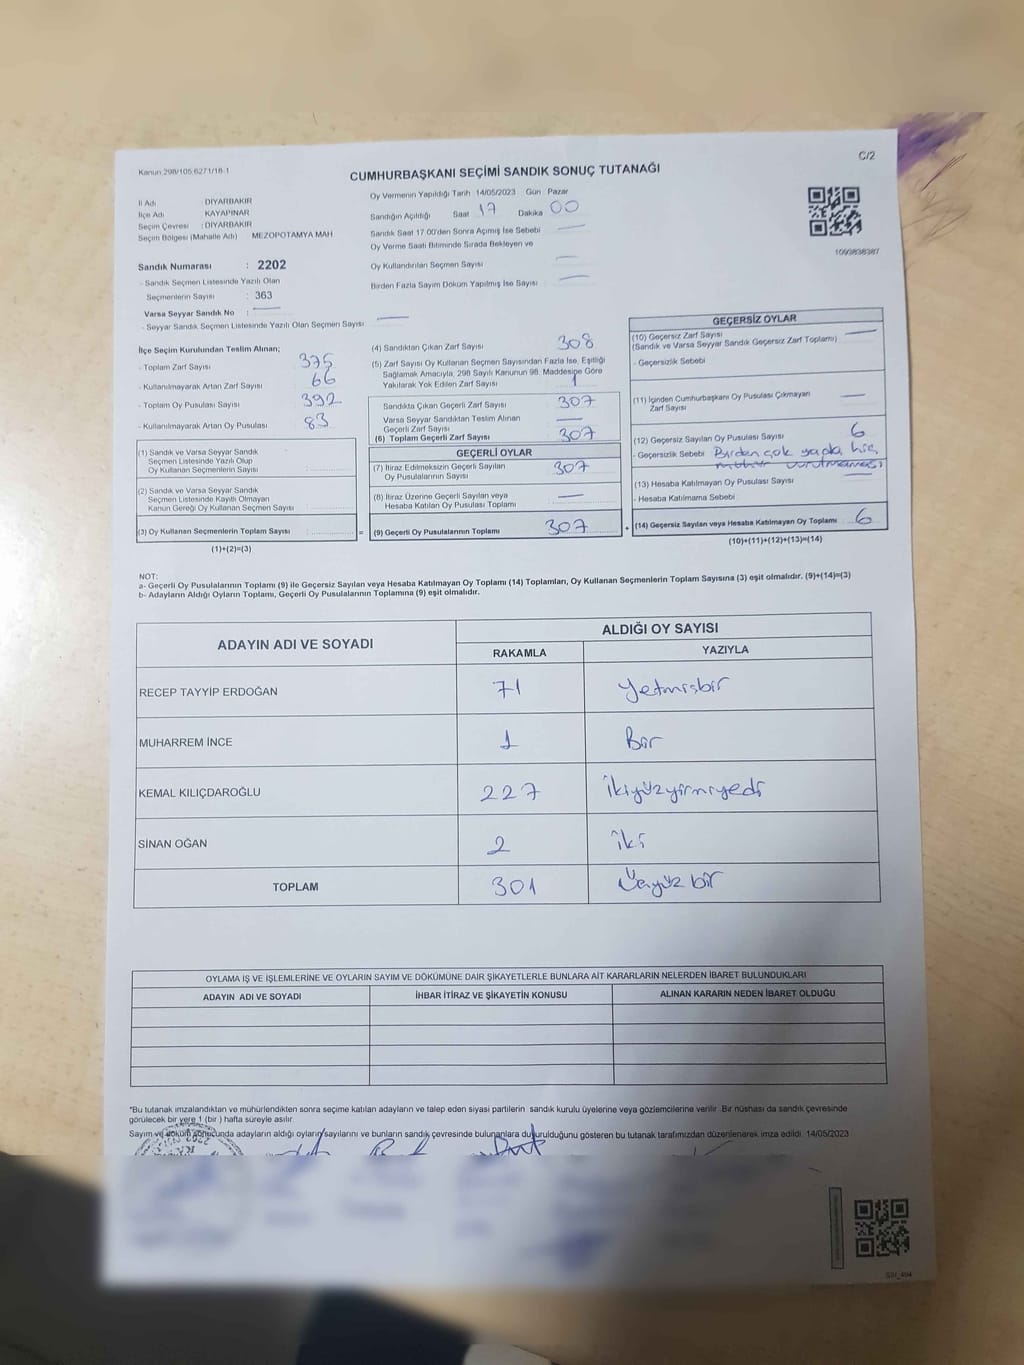 Kanun 298/105;6271/18-1
C/2
CUMHURBAŞKANI SEÇİMİ SANDIK SONUÇ TUTANAĞI
İl Adı : DİYARBAKIR
İlçe Adı : KAYAPINAR
Seçim Çevresi : DİYARBAKIR
Seçim Bölgesi (Mahalle Adı) : MEZOPOTAMYA MAH
Sandık Numarası : 2202
- Sandık Seçmen Listesinde Yazılı Olan
Seçmenlerin Sayısı : 363
Varsa Seyyar Sandık No : —
- Seyyar Sandık Seçmen Listesinde Yazılı Olan Seçmen Sayısı —
Oy Vermenin Yapıldığı Tarih 14/05/2023 Gün Pazar
Sandığın Açıldığı Saat 17 Dakika 00
Sandık Saat 17.00'den Sonra Açımış İse Sebebi —
Oy Verme Saati Bitiminde Sırada Bekleyen ve
Oy Kullandırılan Seçmen Sayısı —
Birden Fazla Sayım Döküm Yapılmış İse Sayısı —
1093838387
İlçe Seçim Kurulundan Teslim Alınan;
- Toplam Zarf Sayısı 375
- Kullanılmayarak Artan Zarf Sayısı 66
- Toplam Oy Pusulası Sayısı 392
- Kullanılmayarak Artan Oy Pusulası 83
(1) Sandık ve Varsa Seyyar Sandık
Seçmen Listesinde Yazılı Olup
Oy Kullanan Seçmenlerin Sayısı :
(2) Sandık ve Varsa Seyyar Sandık
Seçmen Listesinde Kayıtlı Olmayan
Kanun Gereği Oy Kullanan Seçmen Sayısı :
(3) Oy Kullanan Seçmenlerin Toplam Sayısı : =
(1)+(2)=(3)
(4) Sandıktan Çıkan Zarf Sayısı 308
(5) Zarf Sayısı Oy Kullanan Seçmen Sayısından Fazla İse, Eşitliği
Sağlamak Amacıyla, 298 Sayılı Kanunun 98. Maddesine Göre
Yakılarak Yok Edilen Zarf Sayısı 1
Sandıkta Çıkan Geçerli Zarf Sayısı 307
Varsa Seyyar Sandıktan Teslim Alınan
Geçerli Zarf Sayısı —
(6) Toplam Geçerli Zarf Sayısı 307
GEÇERLİ OYLAR
(7) İtiraz Edilmeksizin Geçerli Sayılan
Oy Pusulalarının Sayısı 307
(8) İtiraz Üzerine Geçerli Sayılan veya
Hesaba Katılan Oy Pusulası Toplamı —
(9) Geçerli Oy Pusulalarının Toplamı 307 +
GEÇERSİZ OYLAR
(10) Geçersiz Zarf Sayısı —
(Sandık ve Varsa Seyyar Sandık Geçersiz Zarf Toplamı)
- Geçersizlik Sebebi
(11) İçinden Cumhurbaşkanı Oy Pusulası Çıkmayan
Zarf Sayısı —
(12) Geçersiz Sayılan Oy Pusulası Sayısı 6
- Geçersizlik Sebebi Birden çok yapda hiç
mühür vurulmaması
(13) Hesaba Katılmayan Oy Pusulası Sayısı —
- Hesaba Katılmama Sebebi
(14) Geçersiz Sayılan veya Hesaba Katılmayan Oy Toplamı 6
(10)+(11)+(12)+(13)=(14)
NOT:
a- Geçerli Oy Pusulalarının Toplamı (9) ile Geçersiz Sayılan veya Hesaba Katılmayan Oy Toplamı (14) Toplamları, Oy Kullanan Seçmenlerin Toplam Sayısına (3) eşit olmalıdır. (9)+(14)=(3)
b- Adayların Aldığı Oyların Toplamı, Geçerli Oy Pusulalarının Toplamına (9) eşit olmalıdır.
ADAYIN ADI VE SOYADI
ALDIĞI OY SAYISI
RAKAMLA YAZIYLA
RECEP TAYYİP ERDOĞAN 71 yetmişbir
MUHARREM İNCE 1 Bir
KEMAL KILIÇDAROĞLU 227 ikiyüzyirmiyedi
SİNAN OĞAN 2 iki
TOPLAM 301 üçyüz bir
OYLAMA İŞ VE İŞLEMLERİNE VE OYLARIN SAYIM VE DÖKÜMÜNE DAİR ŞİKAYETLERLE BUNLARA AİT KARARLARIN NELERDEN İBARET BULUNDUKLARI
ADAYIN ADI VE SOYADI İHBAR İTİRAZ VE ŞİKAYETİN KONUSU ALINAN KARARIN NEDEN İBARET OLDUĞU
*Bu tutanak imzalandıktan ve mühürlendikten sonra seçime katılan adayların ve talep eden siyasi partilerin sandık kurulu üyelerine veya gözlemcilerine verilir. Bir nüshası da sandık çevresinde
görülecek bir yere 1 (bir) hafta süreyle asılır.
Sayım ve döküm sonucunda adayların aldığı oyların sayılarını ve bunların sandık çevresinde bulunanlara duyurulduğunu gösteren bu tutanak tarafımızdan düzenlenerek imza edildi. 14/05/2023